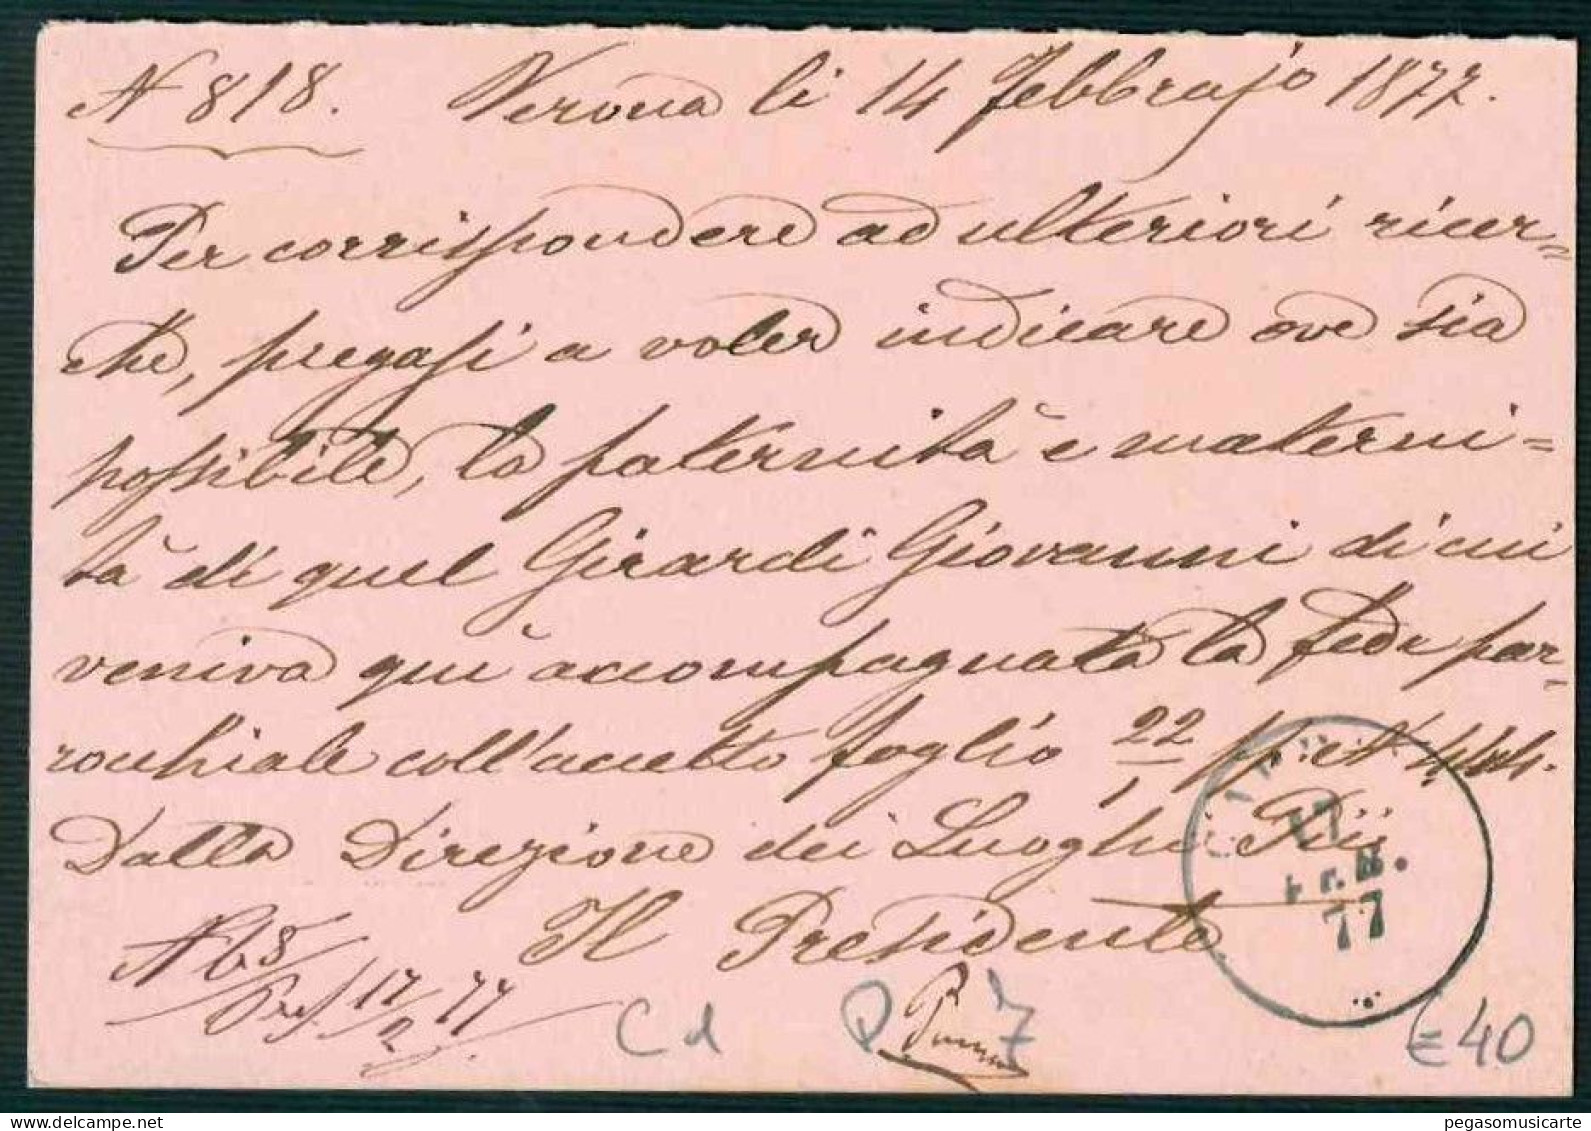 N 818. Verona li 14 Febbrajo 1877.
Per corrispondere ad ulteriori ricer=
che, pregasi a voler indicare ove sia
possibile, la paternità e materni=
tà di quel Girardi Giovanni di cui
veniva quì accompagnata la fede par=
rochiale coll'accetto foglio 22/1
Dalla Direzione dei Luoghi Pii
Il Presidente
17
77
N 68/Pref 17/2 77
Cd
7
€ 40
pegasomusicarte